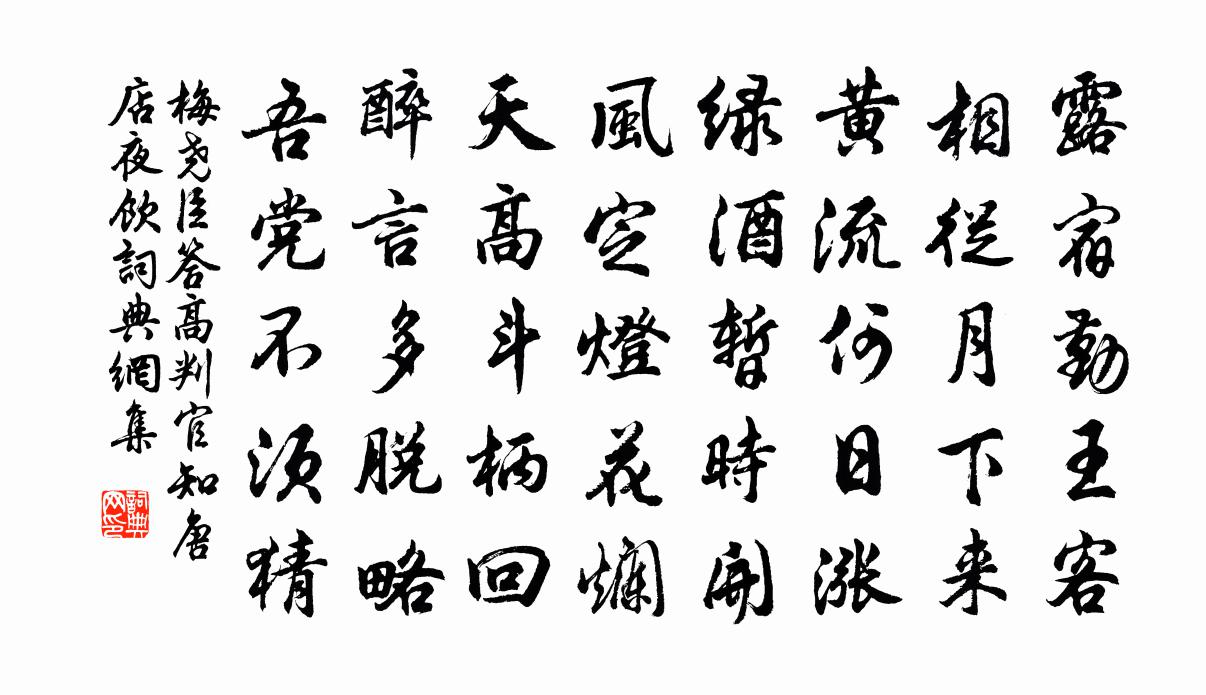 露宿勤王客
相從月下来
黄流何日漲
绿酒暫時開
風定燈花爛
天高斗柄回
醉言多脱略
吾党不須猜
梅堯臣答高判官知唐
店夜飲詞典網集
詞典
网印